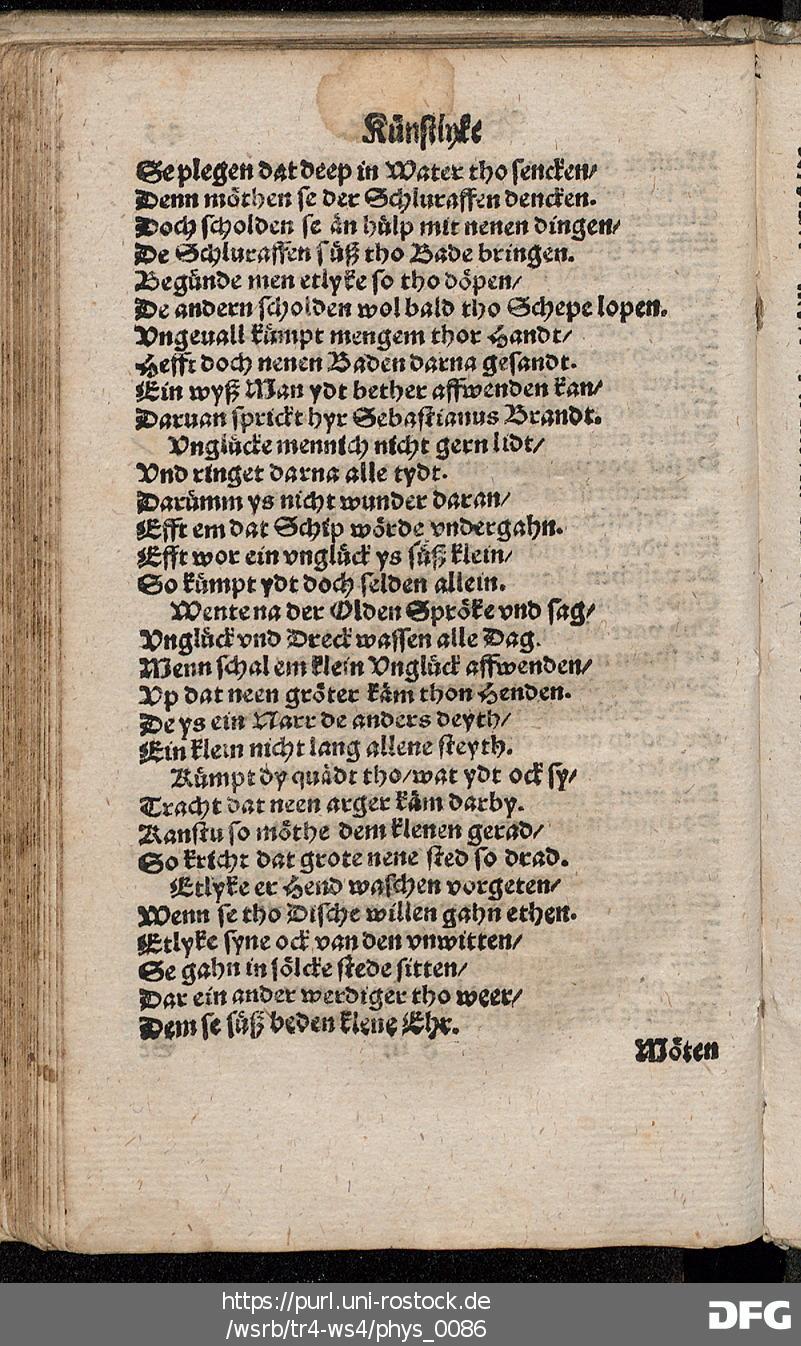 Künstlyke
Se plegen dat deep in Water tho sencken/
Denn möthen se der Schluraffen dencken.
Doch scholden se än hülp mit nenen dingen/
De Schluraffen süß tho Bade bringen.
Begünde men etlyke so tho döpen/
De andern scholden wol bald tho Schepe lopen.
Vngeuall kümpt mengem thor Handt/
Hefft doch nenen Baden darna gesandt.
Ein wyß Man ydt bether affwenden kan/
Daruan sprickt hyr Sebastianus Brandt.
Vnglücke mennich nicht gern lidt/
Vnd ringet darna alle tydt.
Darümm ys nicht wunder daran/
Efft em dat Schip wörde vndergahn.
Efft wor ein vnglück ys süß klein/
So kümpt ydt doch selden allein.
Wente na der Olden Spröke vnd sag/
Vnglück vnd Dreck wassen alle Dag.
Menn schal em klein Vnglück affwenden/
Vp dat neen gröter käm thon Henden.
De ys ein Narr de anders deyth/
Ein klein nicht lang allene steyth.
Kümpt dy quädt tho/wat ydt ock sy/
Tracht dat neen arger käm darby.
Kanstu so möthe dem klenen gerad/
So kricht dat grote nene sted so drad.
Etlyke er Hend waschen vorgeten/
Wenn se tho Dische willen gahn ethen.
Etlyke syne ock van den vnwitten/
Se gahn in sölcke stede sitten/
Dar ein ander werdiger tho weer/
Dem se süß beden klene Ehr.
Möten
https://purl.uni-rostock.de
/wsrb/tr4-ws4/phys_0086
DFG